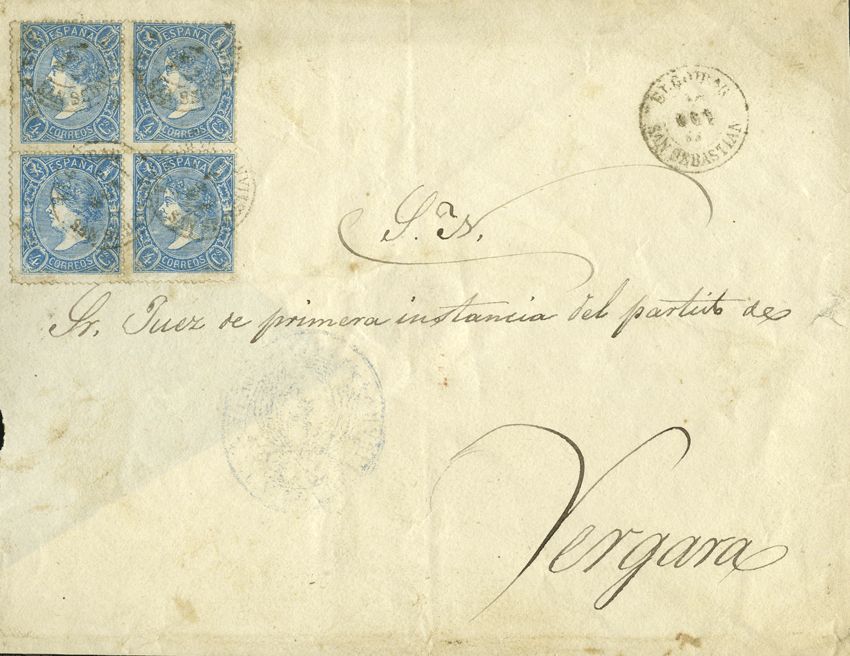 ESPAÑA
4 CORREOS Cs
ESPAÑA
4 CORREOS Cs
ESPAÑA
4 CORREOS Cs
ESPAÑA
4 CORREOS Cs
ELGOIBAR
OCT
SAN SEBASTIAN
S. N.
Sr. Juez de primera instancia del partido de
Vergara